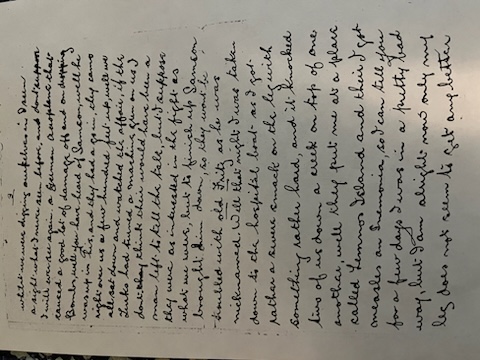 whilst we were digging ourselves in I seen
a sight what I never seen before, and don't suppose
I will ever see again, a German aeroplane that
caused a good lot of damage of and on dropping
Bombs, well you have heard of Samson, well he
was up in his, and they had a go in, they came
right over us a few hundred feet up, well we
all sat down and watched the affair, if the
Turks had turned a machine gun on us, I
don't hardly think there would have been a
man left to tell the tale, but I suppose
they were as interested in the fight as
what we were, but to finish up Samson
brought him down, so they won't be
troubled with old Fritz, as he was
nicknamed. Well that night I was taken
down to the hospital boat as I got
rather a severe smack on the leg with
something rather hard, and it knocked
two of us down a creek on top of one
another, well they put me at a place
called Lemnos Island and there I got
measles an Pneumonia, so I can tell you
for a few days I was in a pretty bad
way, but I am alright now only my
leg does not seem to get any better